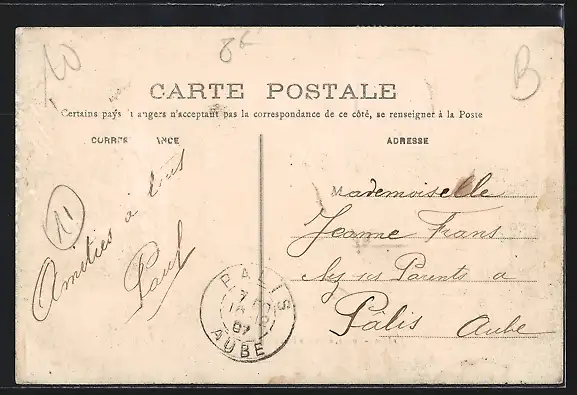 10
8c
B
CARTE POSTALE
Certains pays angers n'acceptant pas la correspondance de ce côté, se renseigner à la Poste
CORRE ANCE
ADRESSE
11
Amitiés à tous
Paul
Mademoiselle
Jeanne Frans
chez ses Parents a
Pâlis Aube
PALIS
07
AUBE